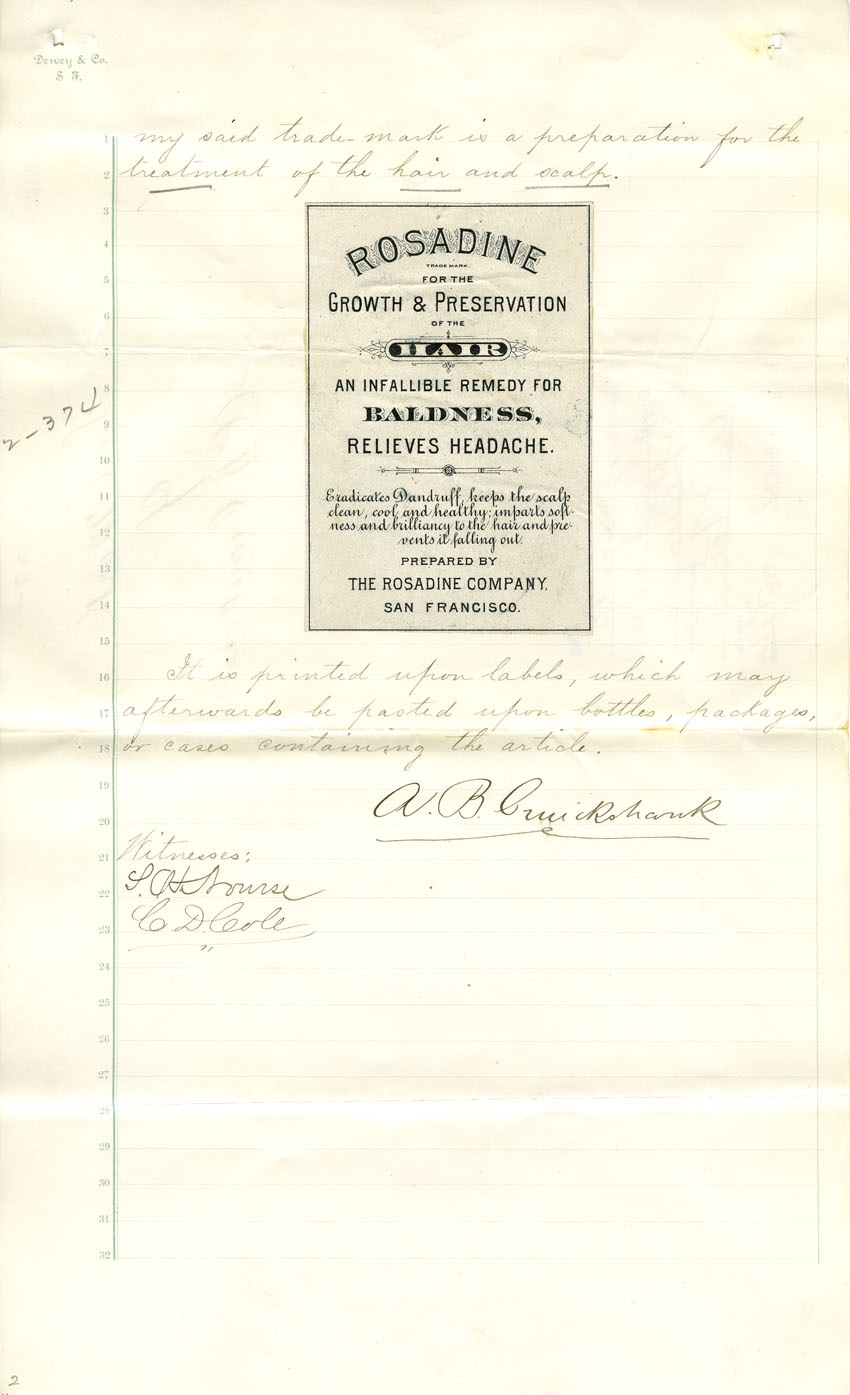 Dewey & Co.
S F.
1 my said trade-mark is a preparation for the
2 treatment of the hair and scalp.
3
4
5
6
7
8
9
10
11
12
13
14
15
ROSADINE
TRADE MARK.
FOR THE
GROWTH & PRESERVATION
OF THE
HAIR
AN INFALLIBLE REMEDY FOR
BALDNESS,
RELIEVES HEADACHE.
Eradicates Dandruff, keeps the scalp
clean, cool and healthy; imparts soft-
ness and brilliancy to the hair and pre-
vents it falling out.
PREPARED BY
THE ROSADINE COMPANY,
SAN FRANCISCO.
2-374
16 It is printed upon labels, which may
17 afterwards be pasted upon bottles, packages,
18 or cases containing the article.
19
20 A. B. Cruickshank
21 Witnesses:
22 S. H. Nourse
23 C D. Cole
24
25
26
27
28
29
30
31
32
2